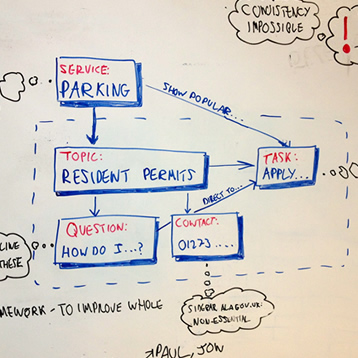 CONSISTENCY
IMPOSSIBLE
!
SERVICE:
PARKING
SHOW POPULAR...
TOPIC:
RESIDENT PERMITS
TASK:
APPLY...
DIRECT TO...
QUESTION:
HOW DO I...?
CONTACT:
01273....
LINE
THESE
MEWORK - TO IMPROVE WHOLE
SIDEBAR ALA GOV.UK:
NON-ESSENTIAL
PAUL, JON